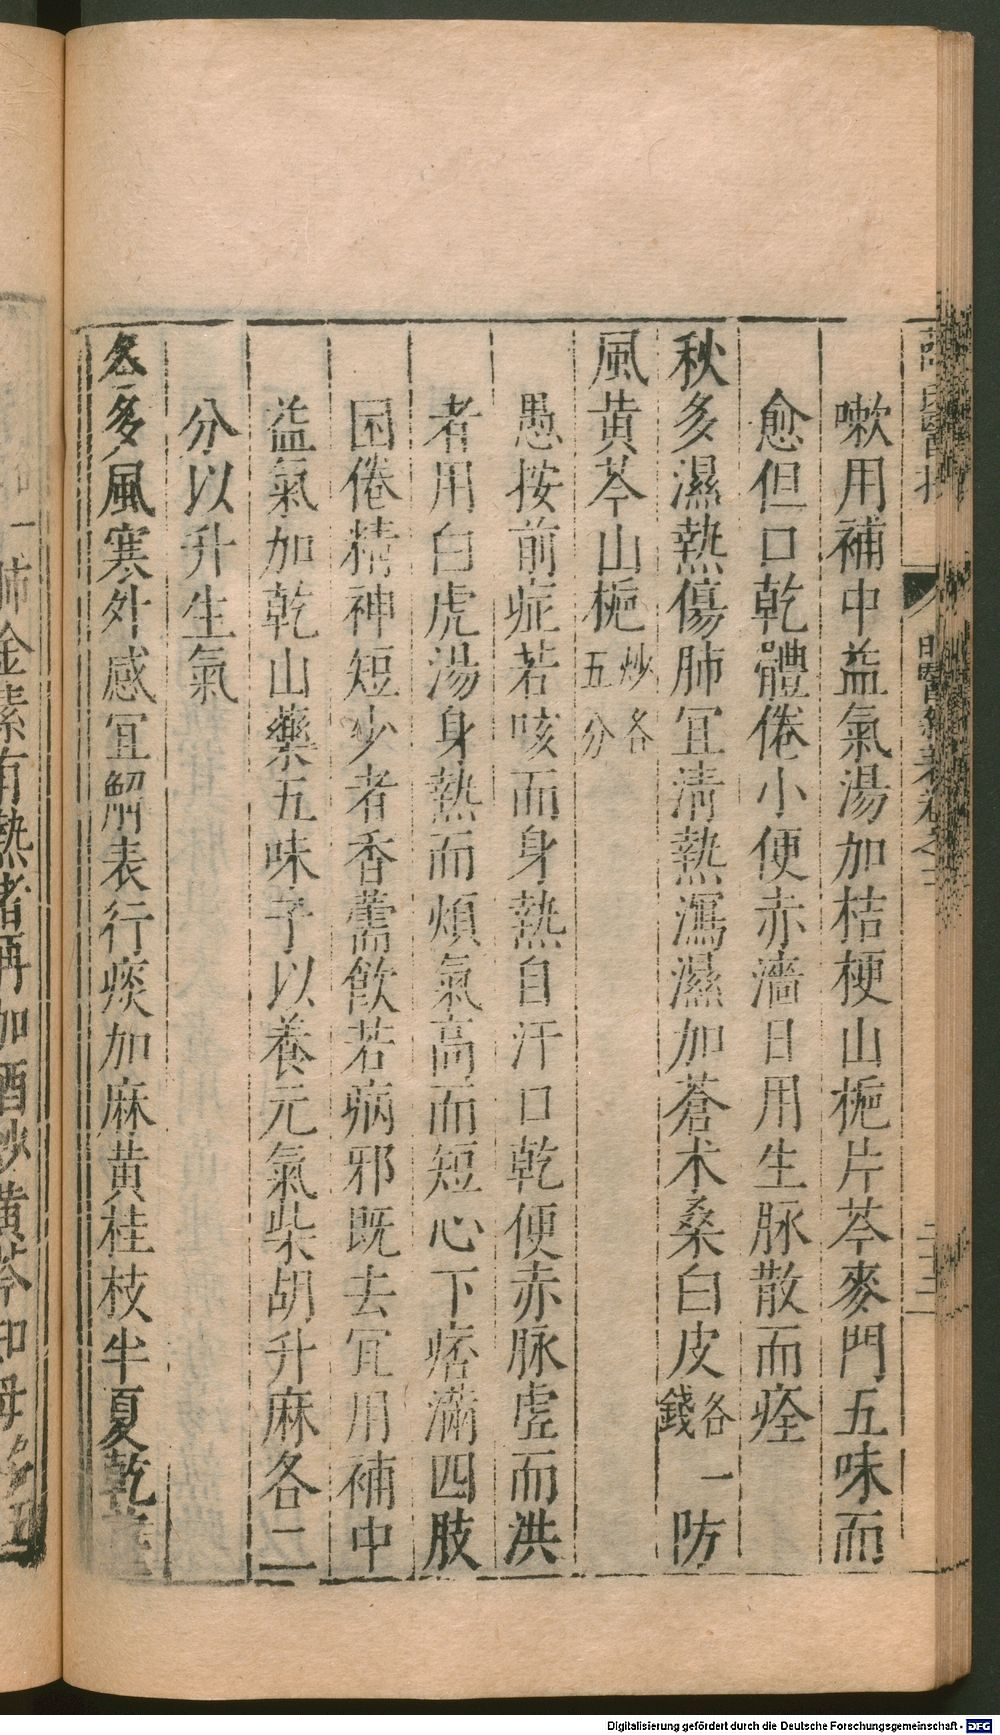 嗽用補中益氣湯加桔梗山梔片芩麥門五味而
愈但口乾體倦小便赤濇日用生脉散而痊
秋多濕熱傷肺冝清熱瀉濕加蒼术桑白皮各一錢防
風黄芩山梔炒各五分
愚按前症若咳而身熱自汗口乾便赤脉虗而洪
者用白虎湯身熱而煩氣高而短心下痞滿四肢
困倦精神短少者香薷飲若病邪既去冝用補中
益氣加乾山藥五味子以養元氣柴胡升麻各二
分以升生氣
冬多風寒外感冝解表行痰加麻黄桂枝半夏乾
肺金素有熱者再加酒炒黄芩知母
Digitalisierung gefördert durch die Deutsche Forschungsgemeinschaft - DFG